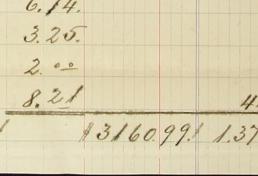 6.14.
3.25.
2.00
8.21 4
3160.99 1.37